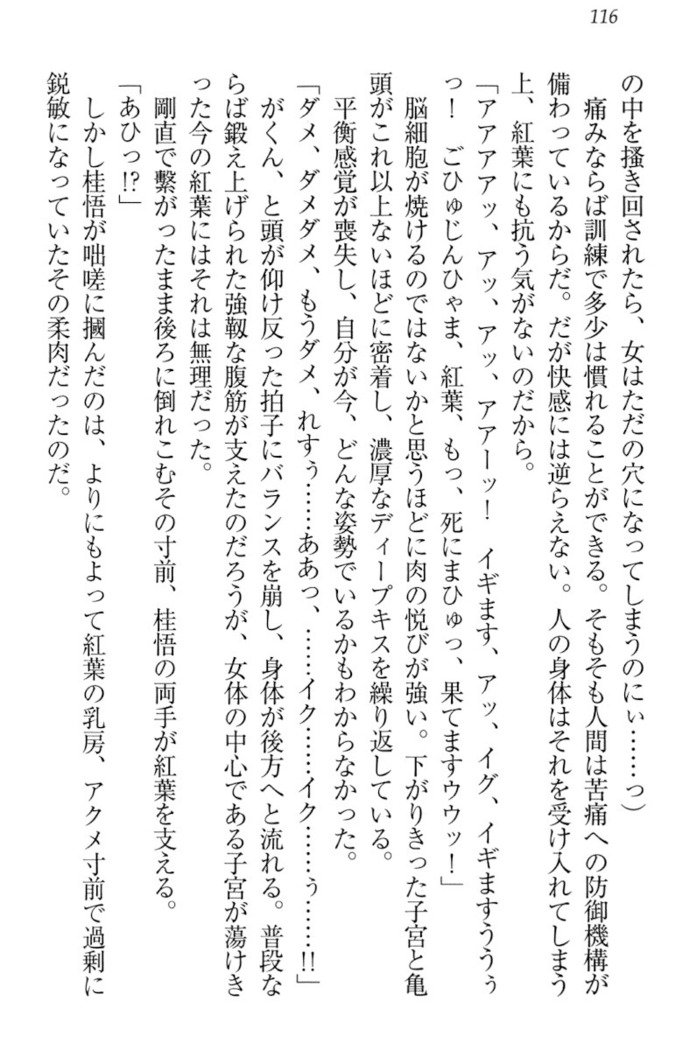 116
の中を掻き回されたら、女はただの穴になってしまうのにぃ……っ）
　痛みならば訓練で多少は慣れることができる。そもそも人間は苦痛への防御機構が
備わっているからだ。だが快感には逆らえない。人の身体はそれを受け入れてしまう
上、紅葉にも抗う気がないのだから。
「アアアアッ、アッ、アッ、アアーッ！　イギます、アッ、イグ、イギますううぅ
っ！　ごひゅじんひゃま、紅葉、もっ、死にまひゅっ、果てますウウッ！」
　脳細胞が焼けるのではないかと思うほどに肉の悦びが強い。下がりきった子宮と亀
頭がこれ以上ないほどに密着し、濃厚なディープキスを繰り返している。
　平衡感覚が喪失し、自分が今、どんな姿勢でいるかもわからなかった。
「ダメ、ダメダメ、もうダメ、れすぅ……ああっ、……イク……イク……ぅ……!!」
　がくん、と頭が仰け反った拍子にバランスを崩し、身体が後方へと流れる。普段な
らば鍛え上げられた強靱な腹筋が支えたのだろうが、女体の中心である子宮が蕩けき
った今の紅葉にはそれは無理だった。
　剛直で繋がったまま後ろに倒れこむその寸前、桂悟の両手が紅葉を支える。
「あひっ!?」
　しかし桂悟が咄嗟に摑んだのは、よりにもよって紅葉の乳房、アクメ寸前で過剰に
鋭敏になっていたその柔肉だったのだ。